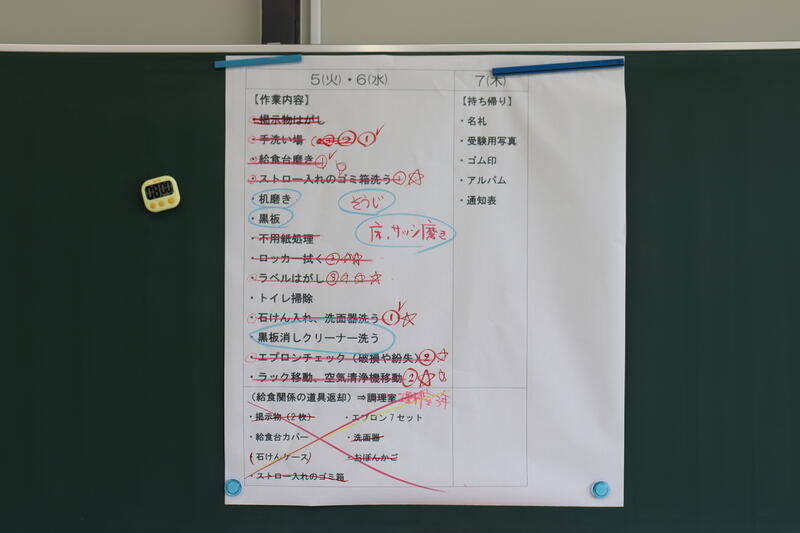 5(火)・6(水) 7(木)
【作業内容】
・掲示物はがし
・手洗い場 ② ①
・給食台磨き ①
・ストロー入れのゴミ箱洗う ① ☆
・机磨き ぞうじ
・黒板
床、サッシ磨き
・不用紙処理
・ロッカー拭く ② ☆☆
・ラベルはがし ③ ☆☆
・トイレ掃除
・石けん入れ、洗面器洗う ① ☆
・黒板消しクリーナー洗う
・エプロンチェック（破損や紛失） ② ☆
・ラック移動、空気清浄機移動 ② ☆ ☆
（給食関係の道具返却）⇒調理室
・掲示物（2枚） ・エプロン7セット
・給食台カバー ・洗面器
（石けんケース） ・おぼんかご
・ストロー入れのゴミ箱
【持ち帰り】
・名札
・受験用写真
・ゴム印
・アルバム
・通知表